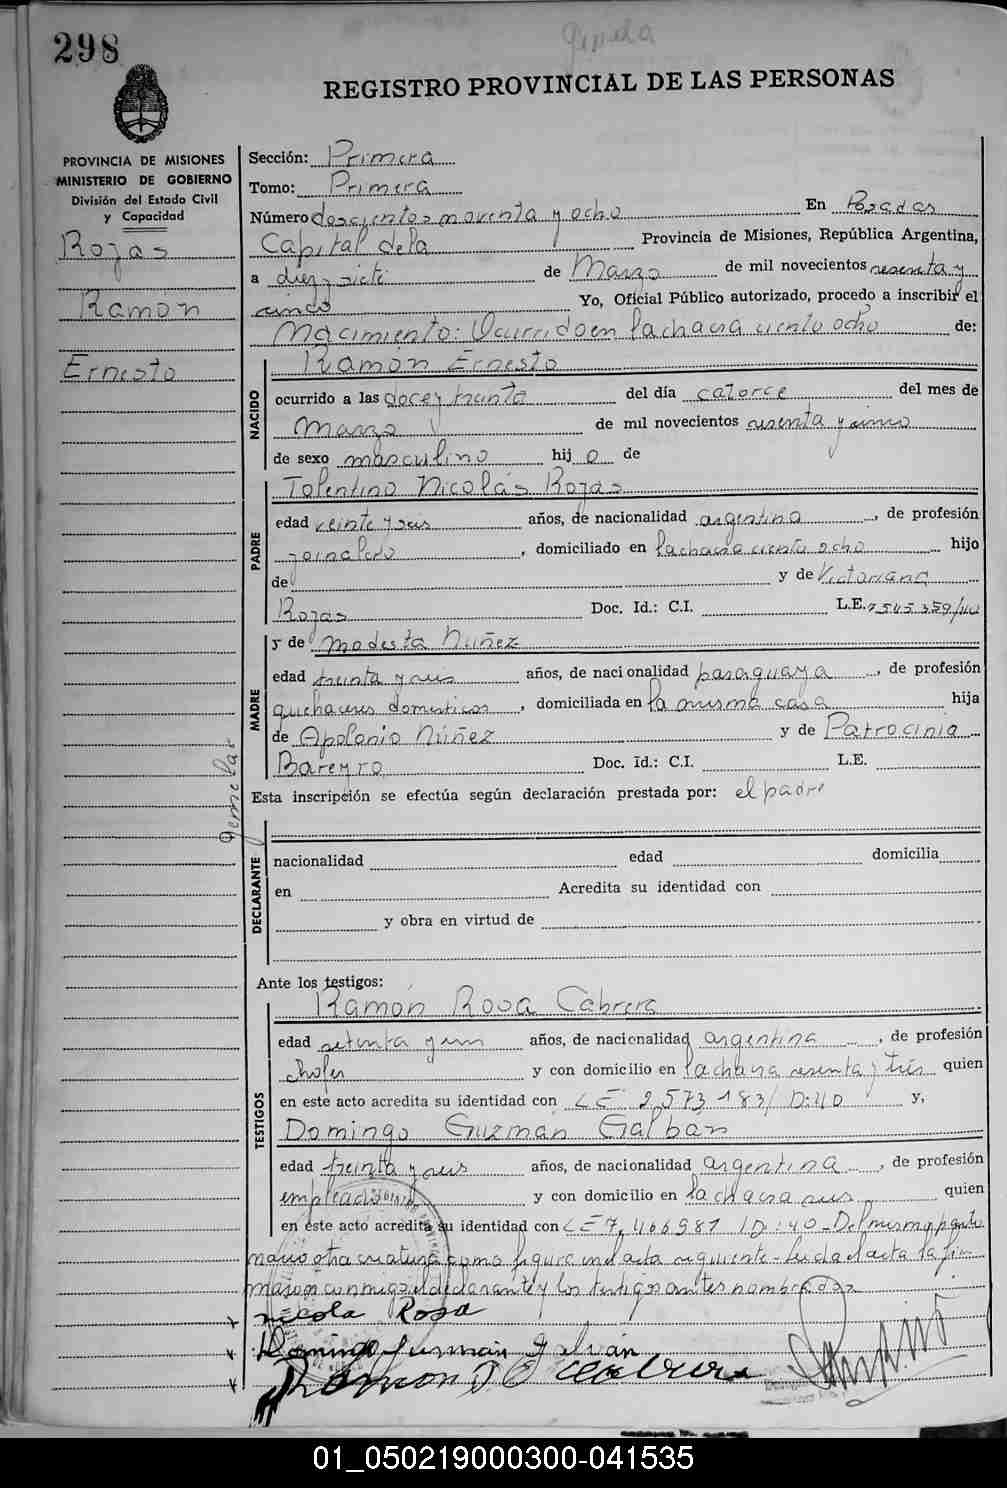 298
REGISTRO PROVINCIAL DE LAS PERSONAS
PROVINCIA DE MISIONES
MINISTERIO DE GOBIERNO
División del Estado Civil
y Capacidad
Rojas
Ramón
Ernesto
Gemelas
Sección: Primera
Tomo: Primera
Número doscientos noventa y ocho En Posadas
Capital de la Provincia de Misiones, República Argentina,
a diez y siete de Marzo de mil novecientos sesenta y
cinco Yo, Oficial Público autorizado, procedo a inscribir el
Nacimiento: Ocurrido en la chacra ciento ocho de:
NACIDO
Ramón Ernesto
ocurrido a las doce y treinta del día catorce del mes de
Marzo de mil novecientos sesenta y cinco
de sexo masculino hij o de
PADRE
Tolentino Nicolás Rojas
edad veinte y seis años, de nacionalidad argentina, de profesión
jornalero, domiciliado en la chacra ciento ocho hijo
de y de Victoriana
Rojas Doc. Id.: C.I. L.E. 7545359/40
MADRE
y de Modesta Núñez
edad treinta y seis años, de nacionalidad paraguaya, de profesión
quehaceres domésticos, domiciliada en la misma casa hija
de Apolonio Núñez y de Patrocinia
Bareyro Doc. Id.: C.I. L.E.
Esta inscripción se efectúa según declaración prestada por: el padre
DECLARANTE
nacionalidad edad domicilia
en Acredita su identidad con
y obra en virtud de
Ante los testigos:
TESTIGOS
Ramón Rosa Cabrera
edad setenta y un años, de nacionalidad argentina, de profesión
chofer y con domicilio en la chacra sesenta y tres quien
en este acto acredita su identidad con LE 2,573,183/ D:40 y,
Domingo Guzmán Galbán
edad treinta y seis años, de nacionalidad argentina, de profesión
empleado y con domicilio en la chacra seis quien
en este acto acredita su identidad con LE 7,466981 /D:40 - Del mismo parto
nació otra criatura como figura en el acta siguiente - Leída el acta la fir
maron conmigo el declarante y los testigos antes nombrados
Nicola Rosa
Domingo Gusman Galván
Ramon R Cabrera
01_050219000300-041535